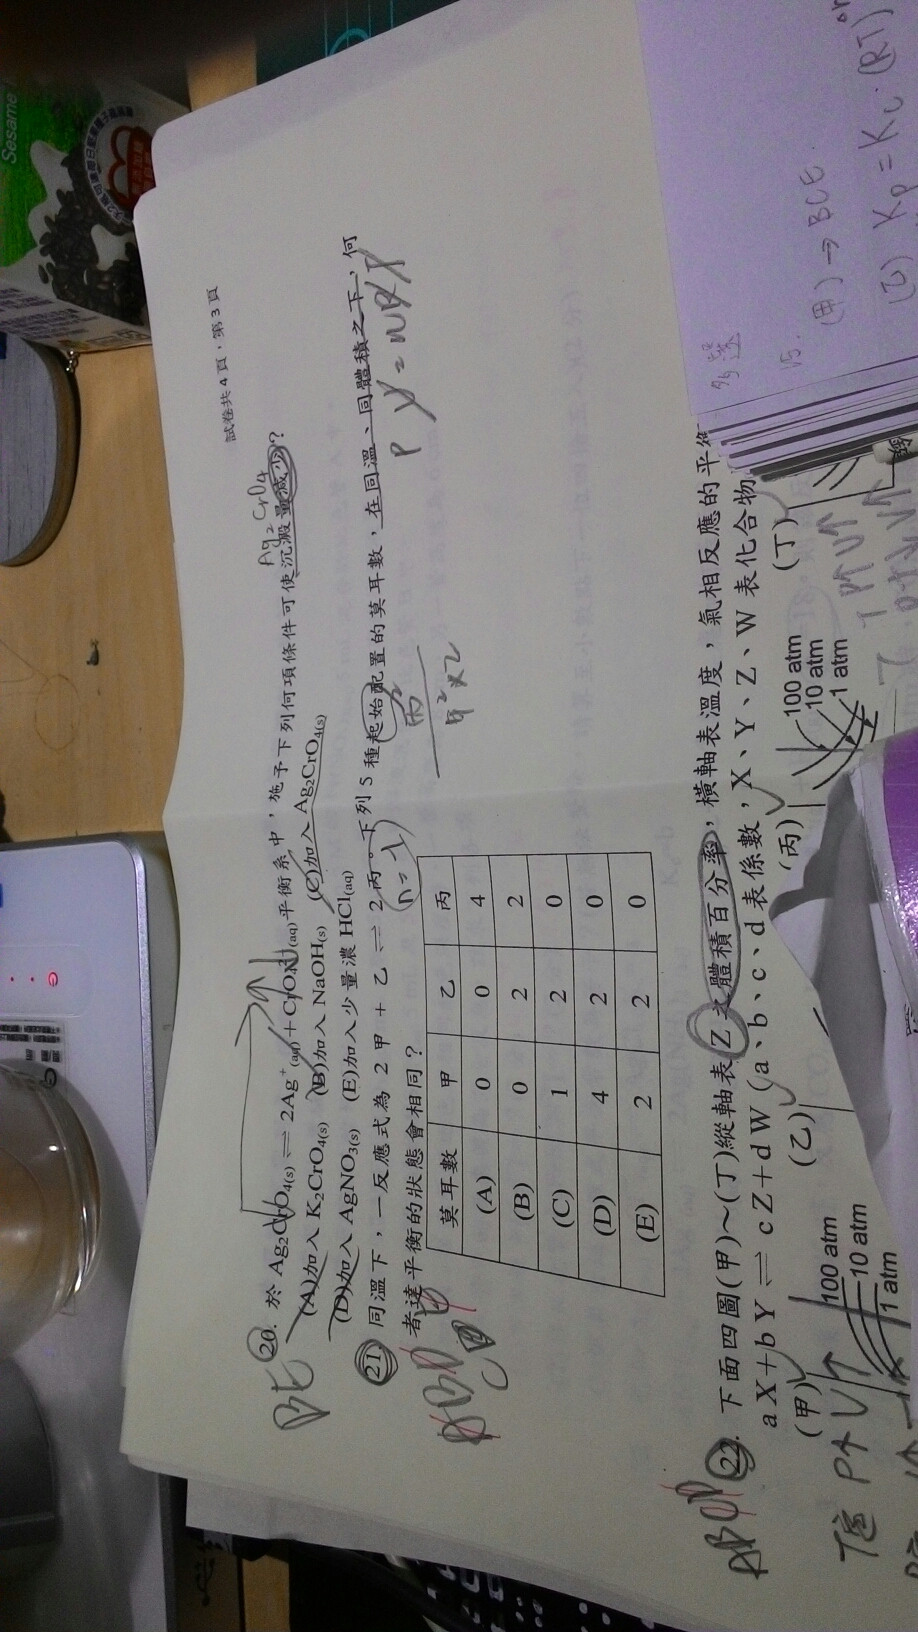 試卷共 4 頁，第 3 頁
20. 於 Ag2CrO4(s) ⇌ 2Ag+(aq) + CrO42-(aq)平衡系中，施予下列何項條件可使沉澱量減少？
Ag2CrO4
(A)加入 K2CrO4(s) (B)加入 NaOH(s) (C)加入 Ag2CrO4(s)
(D)加入 AgNO3(s) (E)加入少量濃 HCl(aq)
BE
21. 同溫下，一反應式為 2 甲 + 乙 ⇌ 2 丙。下列 5 種起始配置的莫耳數，在同溫、同體積之下，何
者達平衡的狀態會相同？
PV = nRT
丙2
甲2×乙
莫耳數 甲 乙 丙
(A) 0 0 4
(B) 0 2 2
(C) 1 2 0
(D) 4 2 0
(E) 2 2 0
22. 下面四圖(甲)～(丁)縱軸表 Z 之體積百分率，橫軸表溫度，氣相反應的平衡
a X + b Y ⇌ c Z + d W (a、b、c、d 表係數，X、Y、Z、W 表化合物
(甲) (乙) (丙) (丁)
100 atm
10 atm
1 atm
100 atm
10 atm
1 atm
T定 P↑ V↑
15.
(甲) → BCE
(乙) Kp = Kc·(RT)
Sesame